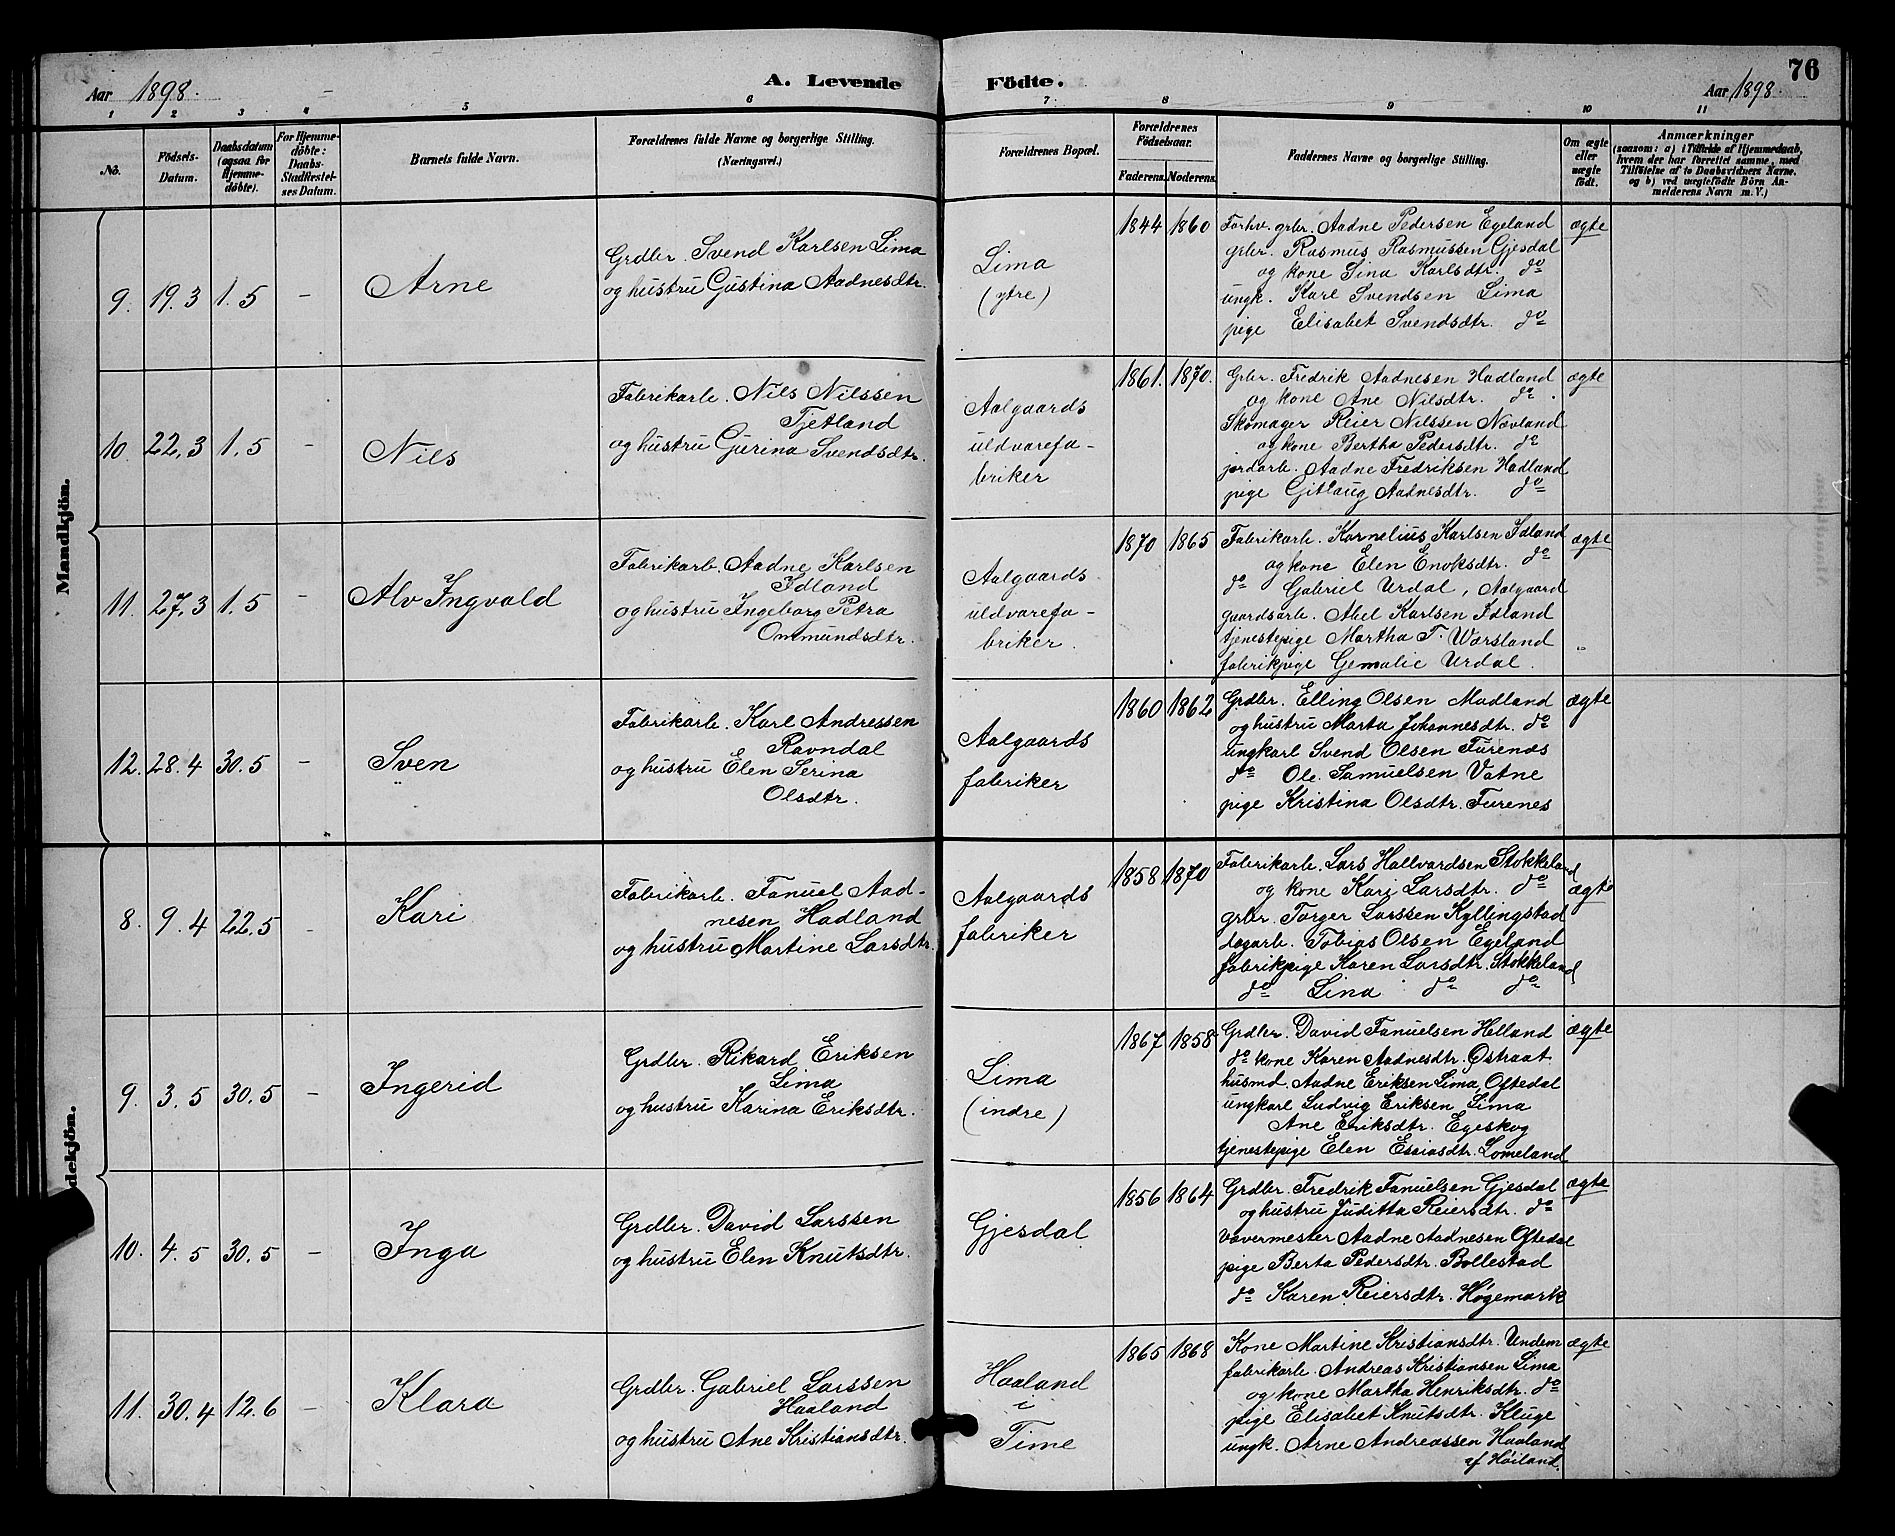 Aar 1898. A. Levende Födte. Aar 1898. 76
1 2 3 4 5 6 7 8 9 10 11
No. Födsels-Datum. Daabsdatum (ogsaa for Hjemme-döbte). For Hjemme-döbte: Daabs-Stadfæstel-ses Datum. Barnets fulde Navn. Forældrenes fulde Navne og borgerlige Stilling. (Næringsvei.) Forældrenes Bopæl. Forældrenes Födselsaar. Faderens. Moderens. Faddernes Navne og borgerlige Stilling. Om ægte eller uægte födt. Anmærkninger (saasom: a) i Tilfælde af Hjemmedaab, hvem der har forrettet samme, med Tilföielse af to Daabsvidners Navne. og b) ved uægtefödte Börn An-melderens Navn m. V.)
Mandkjön.
9. 19.3 1.5 – Arne
Grdbr. Svend Karlsen Lima
og hustru Gustina Aadnesdtr.
Lima
(ytre)
1844 1860
Forhv. grbr. Aadne Pedersen Egeland
grbr. Rasmus Rasmussen Gjesdal
og kone Sina Karlsdtr. do
ungk. Karl Svendsen Lima
pige Elisabet Svendsdtr. do
ægte
10. 22.3 1.5 – Nils
Fabrikarb. Nils Nilssen
Tjetland
og hustru Gurina Svendsdtr.
Aalgaards
uldvarefa-
briker
1861. 1870.
Grbr. Fredrik Aadnesen Hadland
og kone Ane Nilsdtr. do
Skomager Reier Nilssen Nævland
og kone Bertha Pedersdtr. do
jordarb. Aadne Fredriksen Hadland
pige Gitlaug Aadnesdtr. do
ægte
11. 27.3 1.5 – Alv Ingvald
Fabrikarb. Aadne Karlsen
Idland
og hustru Ingeborg Petra
Ommundsdtr.
Aalgaards
uldvarefa-
briker.
1870 1865
Fabrikarb. Kornelius Karlsen Idland
og kone Elen Enoksdtr. do
do Gabriel Urdal, Aalgaard
gaardsarb. Abel Karlsen Idland
tjenestepige Martha T. Wærsland
fabrikpige Gemalie Urdal.
ægte
12. 28.4 30.5 – Sven
Fabrikarb. Karl Andressen
Ravndal
og hustru Elen Serina
Olsdtr.
Aalgaards
fabriker
1860 1862
Grdbr. Elling Olsen Madland
og hustru Marta Johannesdtr. do
ungkarl Svend Olsen Furenes
do Ole Samuelsen Vatne
pige Kristina Olsdtr. Furenes
ægte
dekjön.
8. 9.4 22.5 Kari
Fabrikarb. Fanuel Aad-
nesen Hadland
og hustru Martine Larsdtr.
Aalgaards
fabriker
1858 1870
Fabrikarb. Lars Hallvardsen Stokkeland
og kone Kari Larsdtr. do
grbr. Torger Larssen Kyllingstad
dagarb. Tobias Olsen Egeland
fabrikpige Karen Larsdtr. Stokkeland
do Lina do do
ægte
9. 3.5 30.5 – Ingerid
Grdbr. Rikard Eriksen
Lima
og hustru Karina Eriksdtr.
Lima
(indre)
1867 1858
Grdbr. David Fanuelsen Helland
do kone Karen Aadnesdtr. Østraat
husmd. Aadne Eriksen Lima, Oftedal
ungkarl Ludvig Eriksen Lima
Ane Eriksdtr. Egeskog
tjenestepige Elen Esaiasdtr. Lomeland
ægte
10. 4.5 30.5 – Inga
Grdbr. David Larssen
og hustru Elen Knutsdtr.
Gjesdal
1856 1864
Grdbr. Fredrik Fanuelsen Gjesdal
og hustru Juditta Reiersdtr. do
Vævermester Aadne Aadnesen Oftedal
pige Berta Pedersdtr. Bollestad
do Karen Reiersdtr. Høgemark
ægte
11. 30.4 12.6 – Klara
Grdbr. Gabriel Larssen
Haaland
og hustru Ane Kristiansdtr.
Haaland
i
Time
1865 1868
Kone Martine Kristiansdtr. Undem
fabrikarb. Andreas Kristiansen Lima
og kone Martha Henriksdtr. do
pige Elisabet Knutsdtr. Kluge
ungk. Arne Andreassen Haaland
af Høiland.
ægte